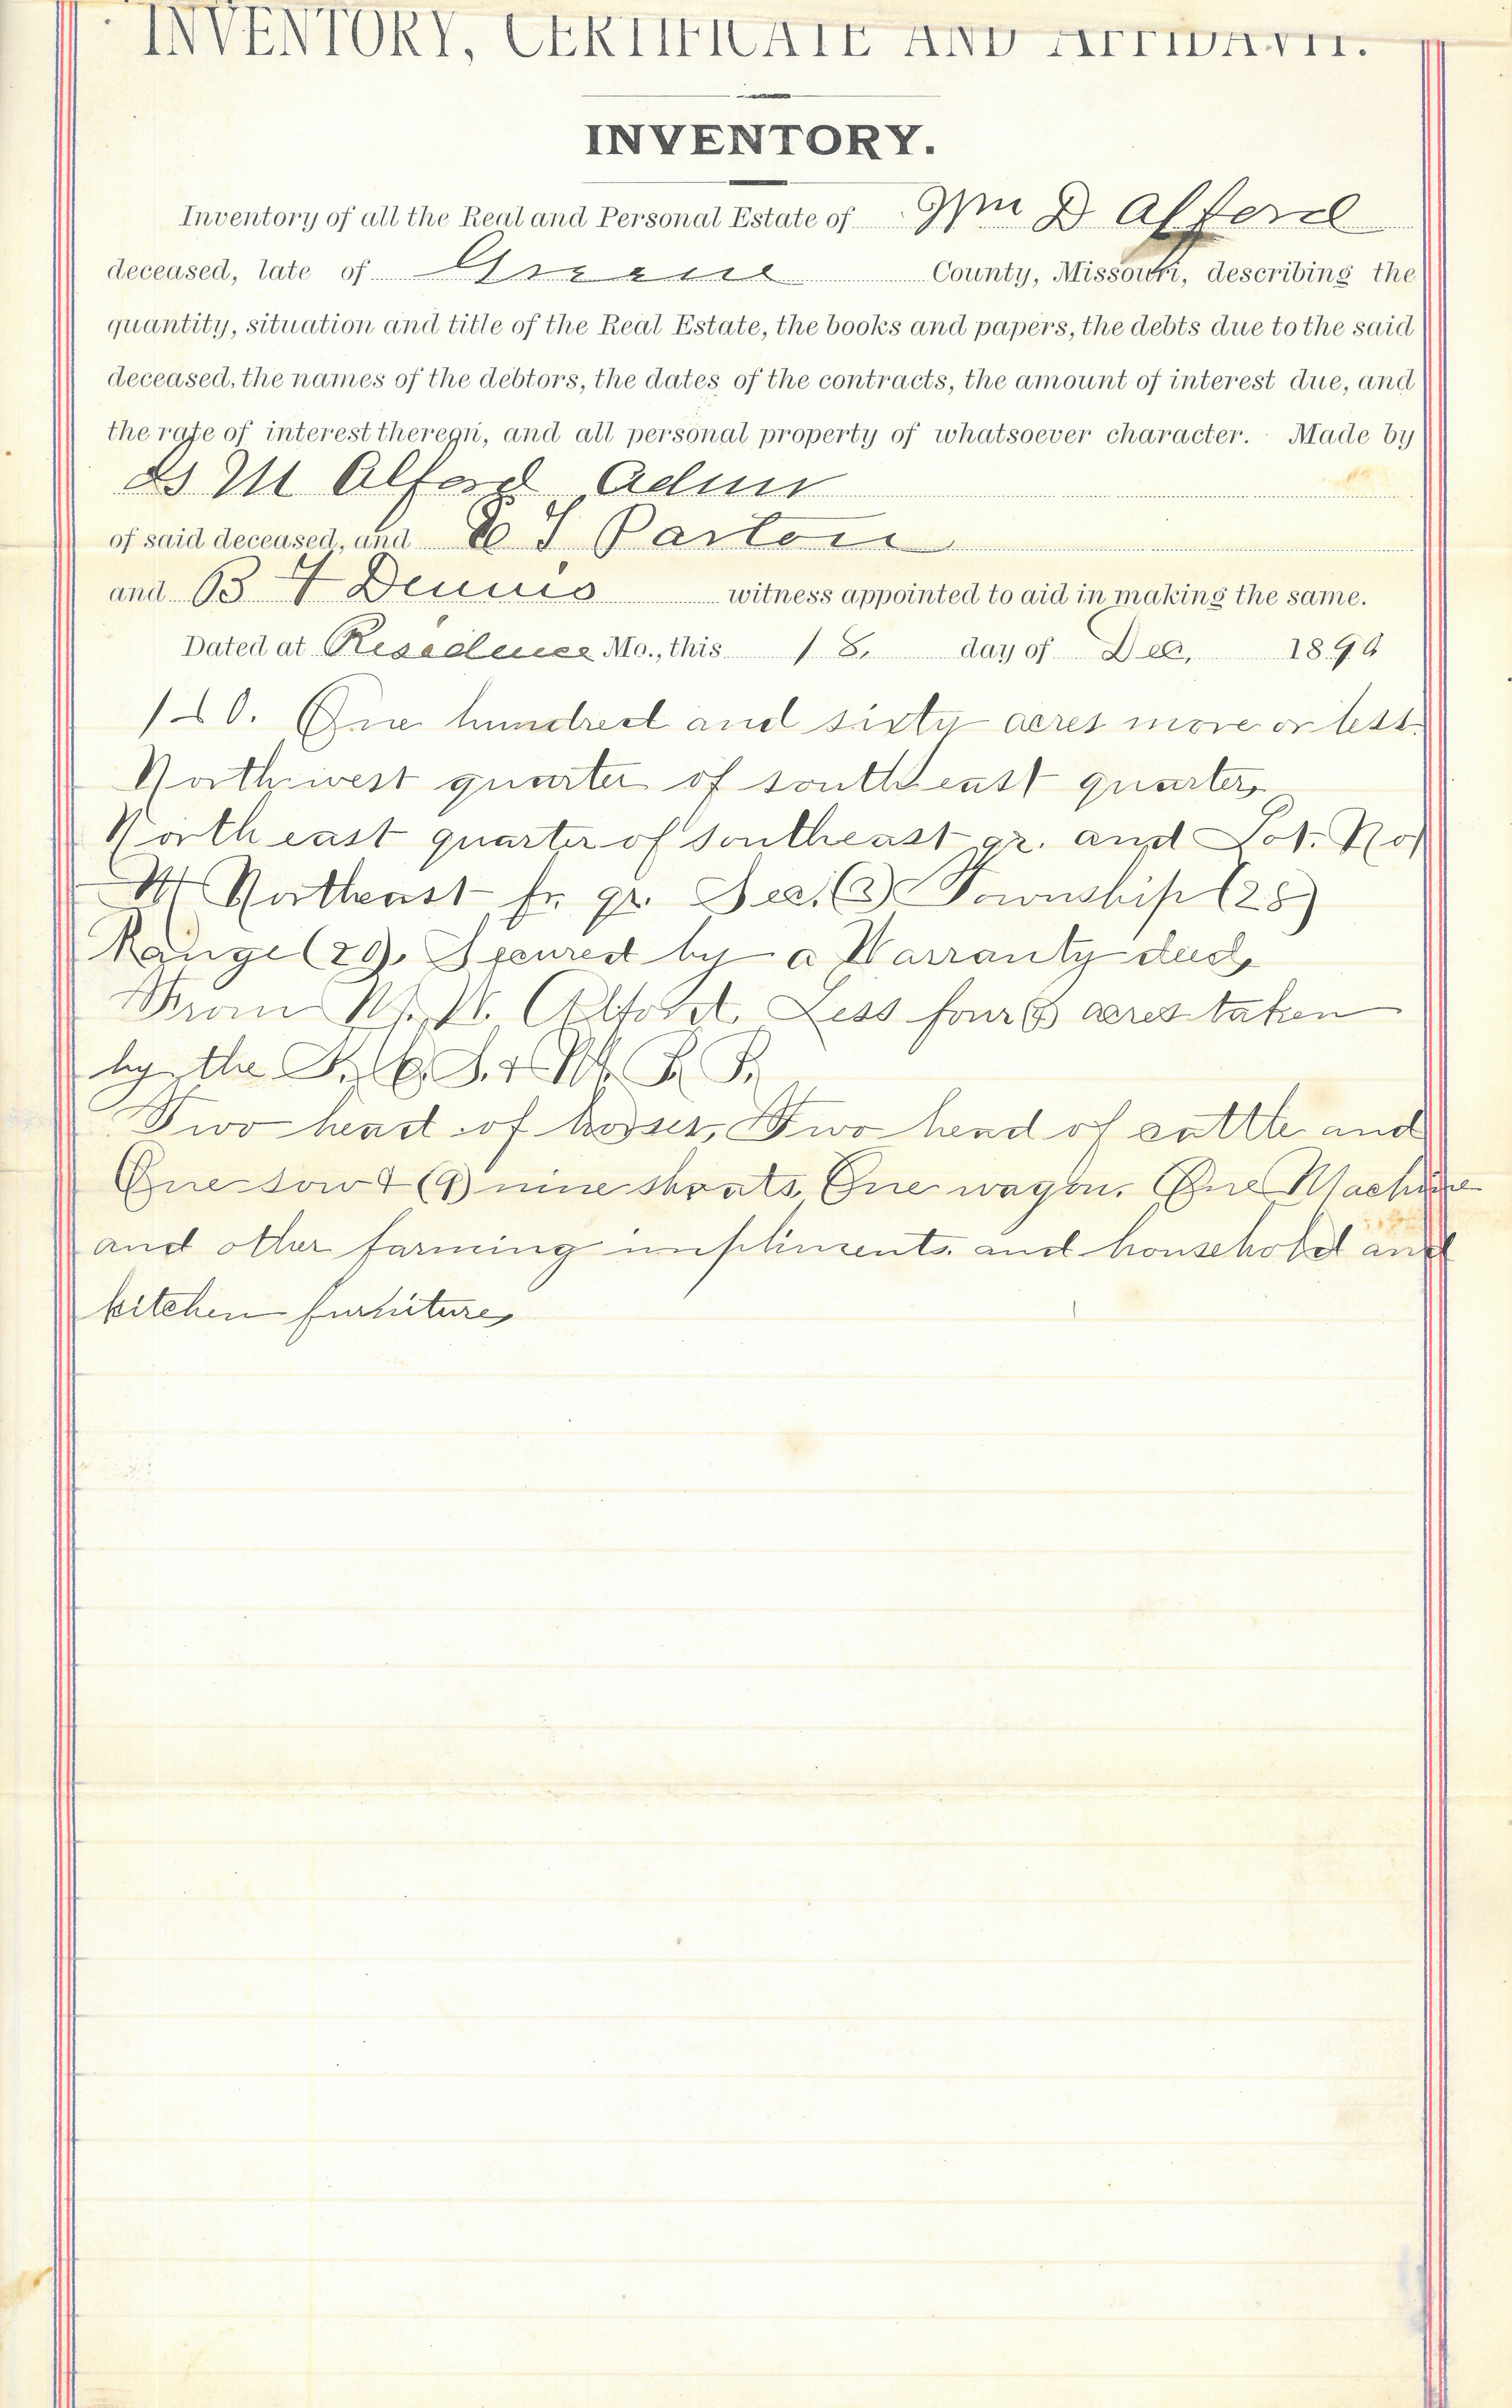 INVENTORY, CERTIFICATE AND AFFIDAVIT.
INVENTORY.
Inventory of all the Real and Personal Estate of Wm D Alford
deceased, late of Greene County, Missouri, describing the
quantity, situation and title of the Real Estate, the books and papers, the debts due to the said
deceased, the names of the debtors, the dates of the contracts, the amount of interest due, and
the rate of interest thereon, and all personal property of whatsoever character. Made by
M Alford Admr
of said deceased, and Parton
and B F Dennis witness appointed to aid in making the same.
Dated at Residence Mo., this 18. day of Dec, 189
160. One hundred and sixty acres more or less.
North west quarter of south east quarter,
North east quarter of southeast qr. and Lot. No
Northeast fr. qr. Sec. (3) Township (28)
Range (20), Secured by a Warranty deed,
From Alford. Less four acres taken
by the K. C. S. & M. R. R.
Two head of horses, Two head of cattle and
One sow & (9) nine shoats, One wagon. One Machine
and other farming impliments. and household and
kitchen furniture,